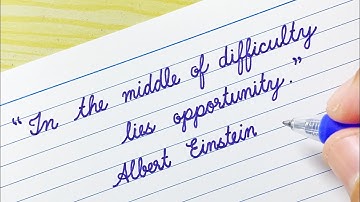 “In the middle of difficulty
lies opportunity.”
Albert Einstein